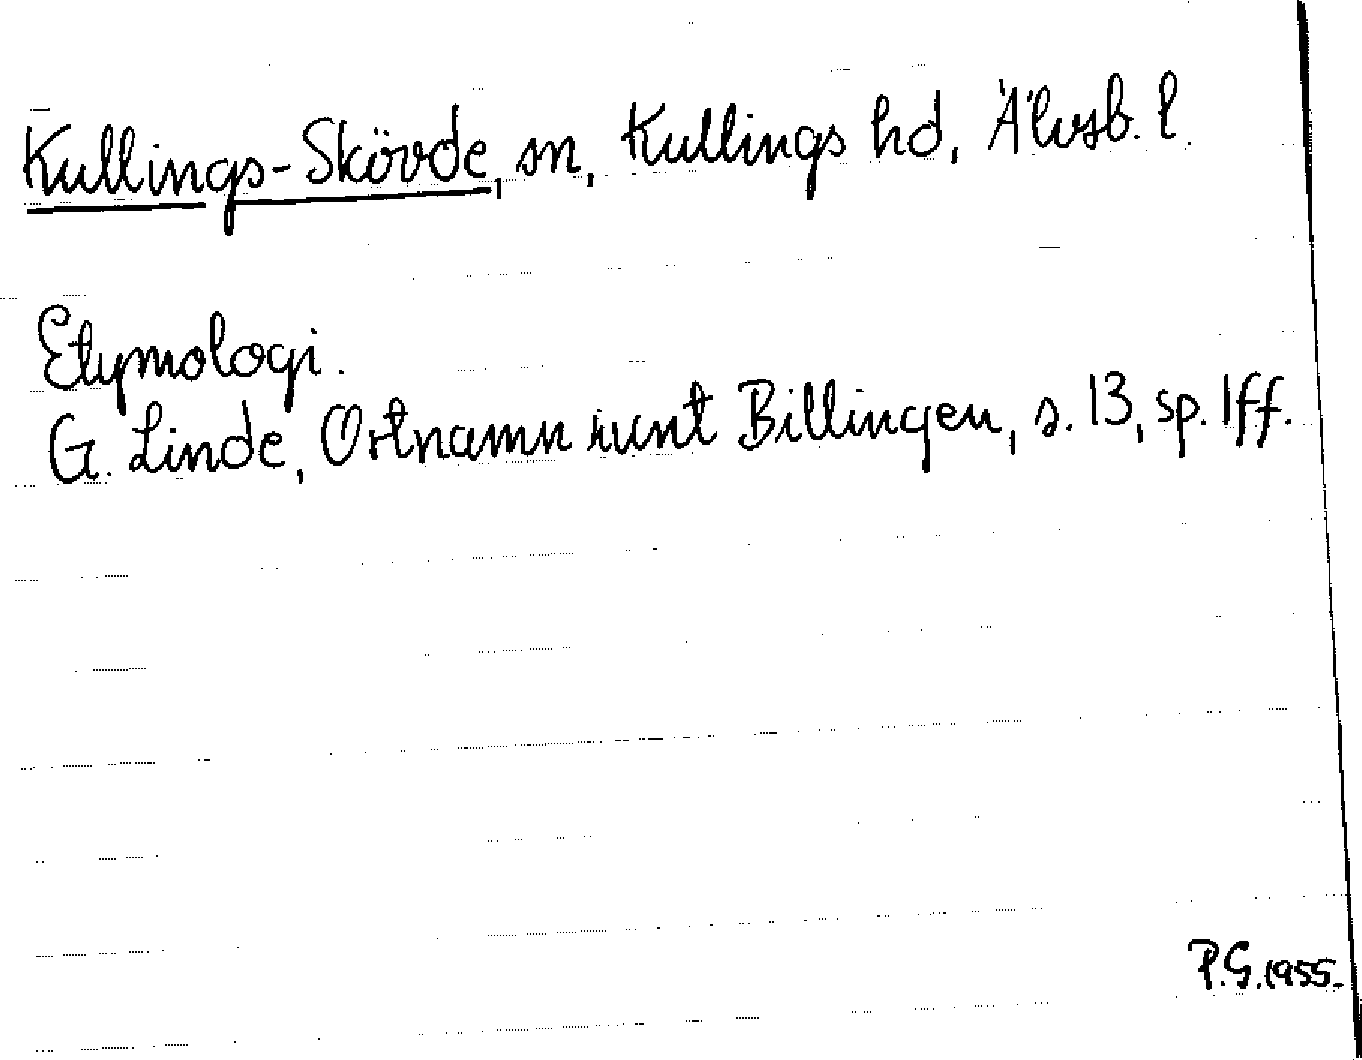 Kullings-Skövde, sn, Kullings hd, Älvsb. l.
Etymologi.
G. Linde, Ortnamn runt Billingen, s. 13, sp. 1ff.
P.G. 1955.